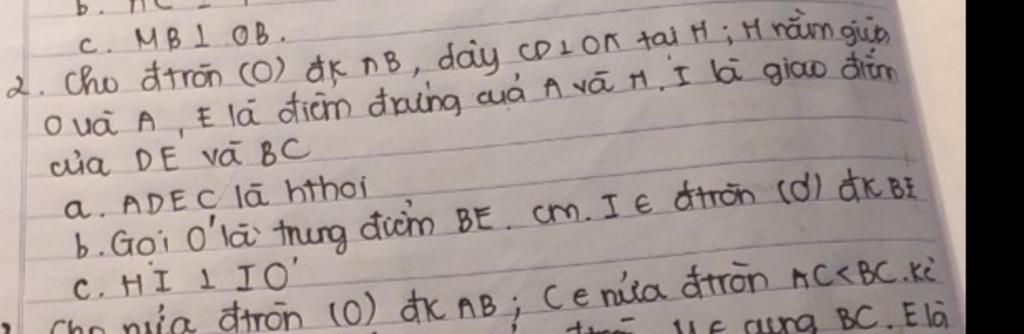 c. MB⊥ OB.
2. Cho đtròn (O) đk AB, dây CD⊥OA tại H; H nằm giữa
O và A, E là điểm đxứng của A và H. I là giao điểm
của DE và BC
a. ADEC là hthoi
b. Gọi O' là trung điểm BE. cm. I ∈ đtròn (O') đk BE
c. HI ⊥ IO'
Cho nửa đtròn (O) đk AB; C ∈ nửa đtròn AC<BC. kẻ
cung BC. E là